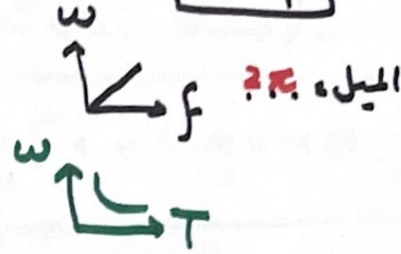 ω
f
الميل = 2π
ω
T